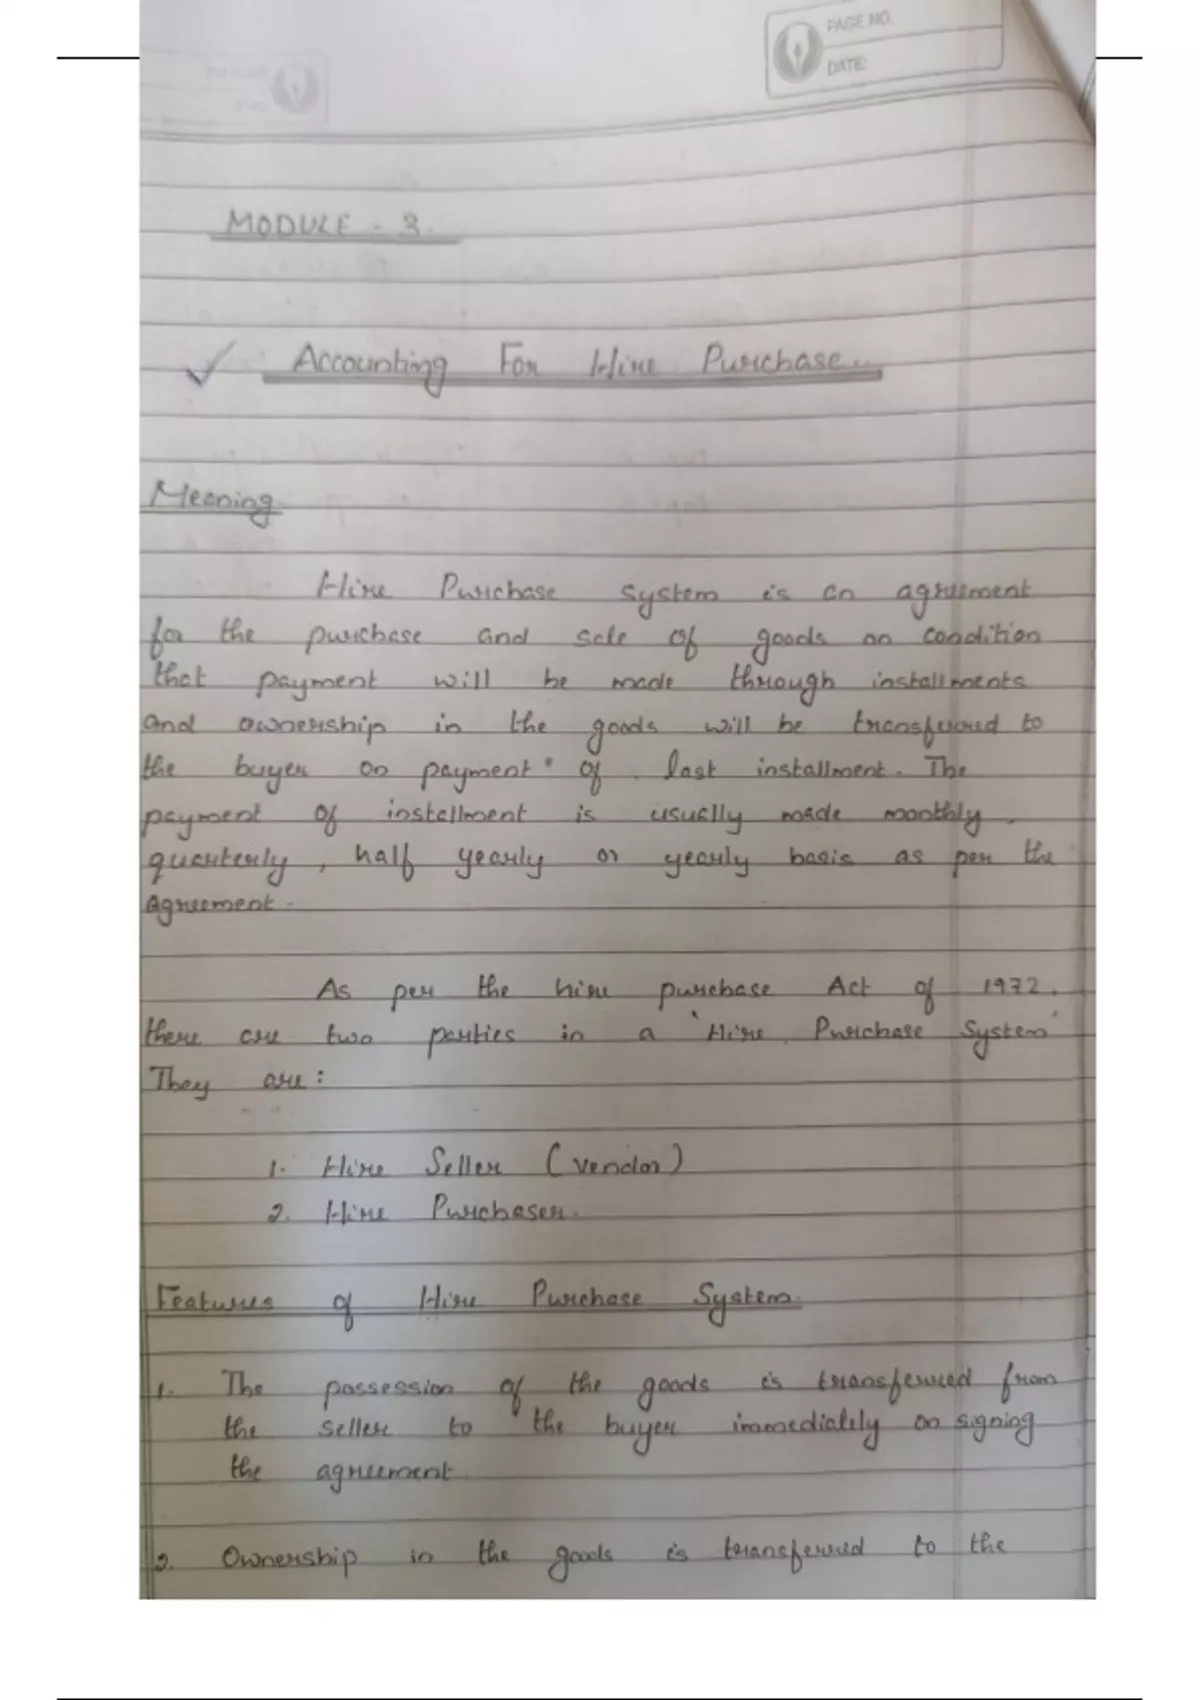 PAGE NO.
DATE:
MODULE - 3.
Accounting For Hire Purchase..
Meaning
Hire Purchase system is an agreement
for the purchase and sale of goods on condition
that payment will be made through installments
and ownership in the goods will be transferred to
the buyer on payment of last installment. The
payment of installment is usually made monthly,
quarterly, half yearly or yearly basis as per the
agreement.
As per the hire purchase Act of 1972,
there are two parties in a 'Hire Purchase System'
They are:
1. Hire Seller (vendor)
2. Hire Purchaser.
Features of Hire Purchase System.
1. The possession of the goods is transferred from
the seller to the buyer immediately on signing
the agreement
2. Ownership in the goods is transferred to the